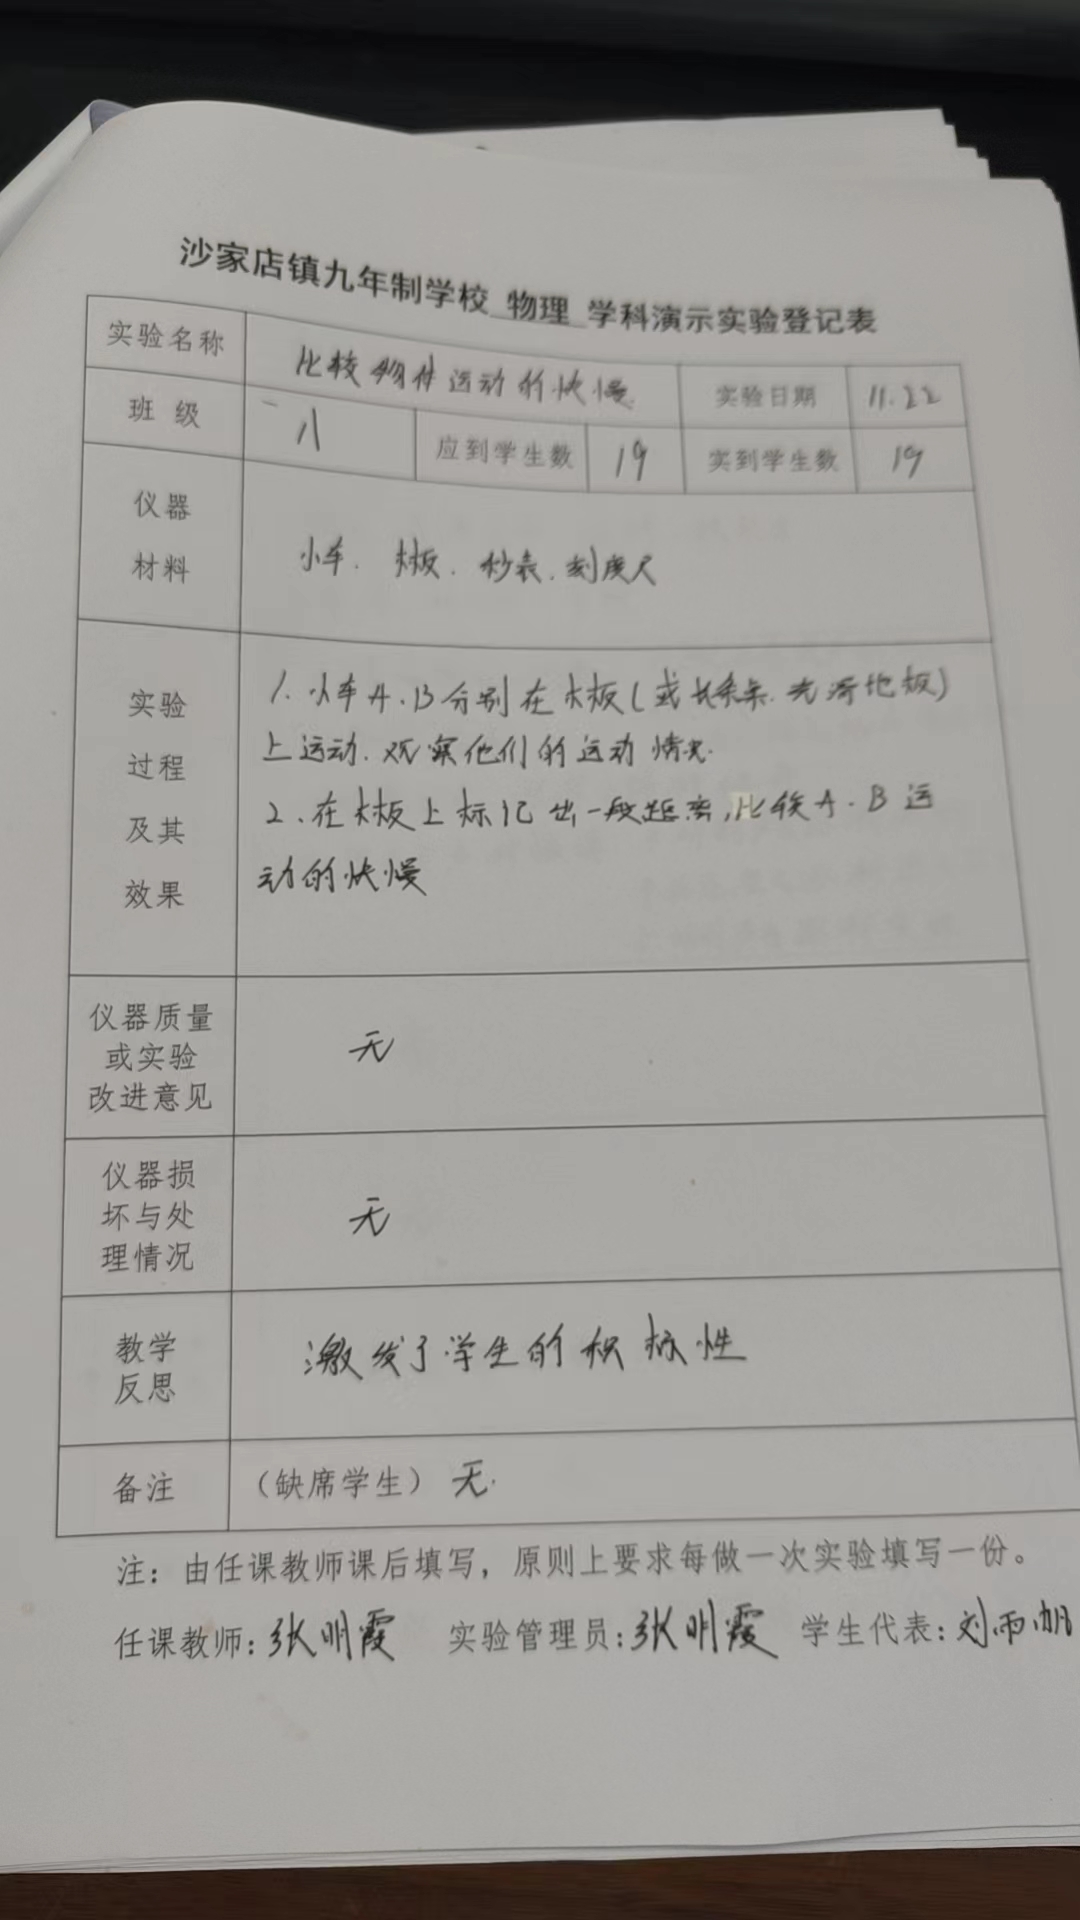 沙家店镇九年制学校 物理 学科演示实验登记表
实验名称 比较物体运动的快慢 实验日期 11.22
班 级 八 应到学生数 19 实到学生数 19
仪器
材料
小车、木板、秒表、刻度尺
实验
过程
及其
效果
1、小车A、B分别在木板(或长条桌、光滑地板)
上运动、观察他们的运动情况.
2、在木板上标记出一段距离,比较A、B运
动的快慢
仪器质量
或实验
改进意见
无
仪器损
坏与处
理情况
无
教学
反思
激发了学生的积极性
备注 (缺席学生) 无.
注：由任课教师课后填写，原则上要求每做一次实验填写一份。
任课教师:张明霞 实验管理员:张明霞 学生代表:刘雨帆